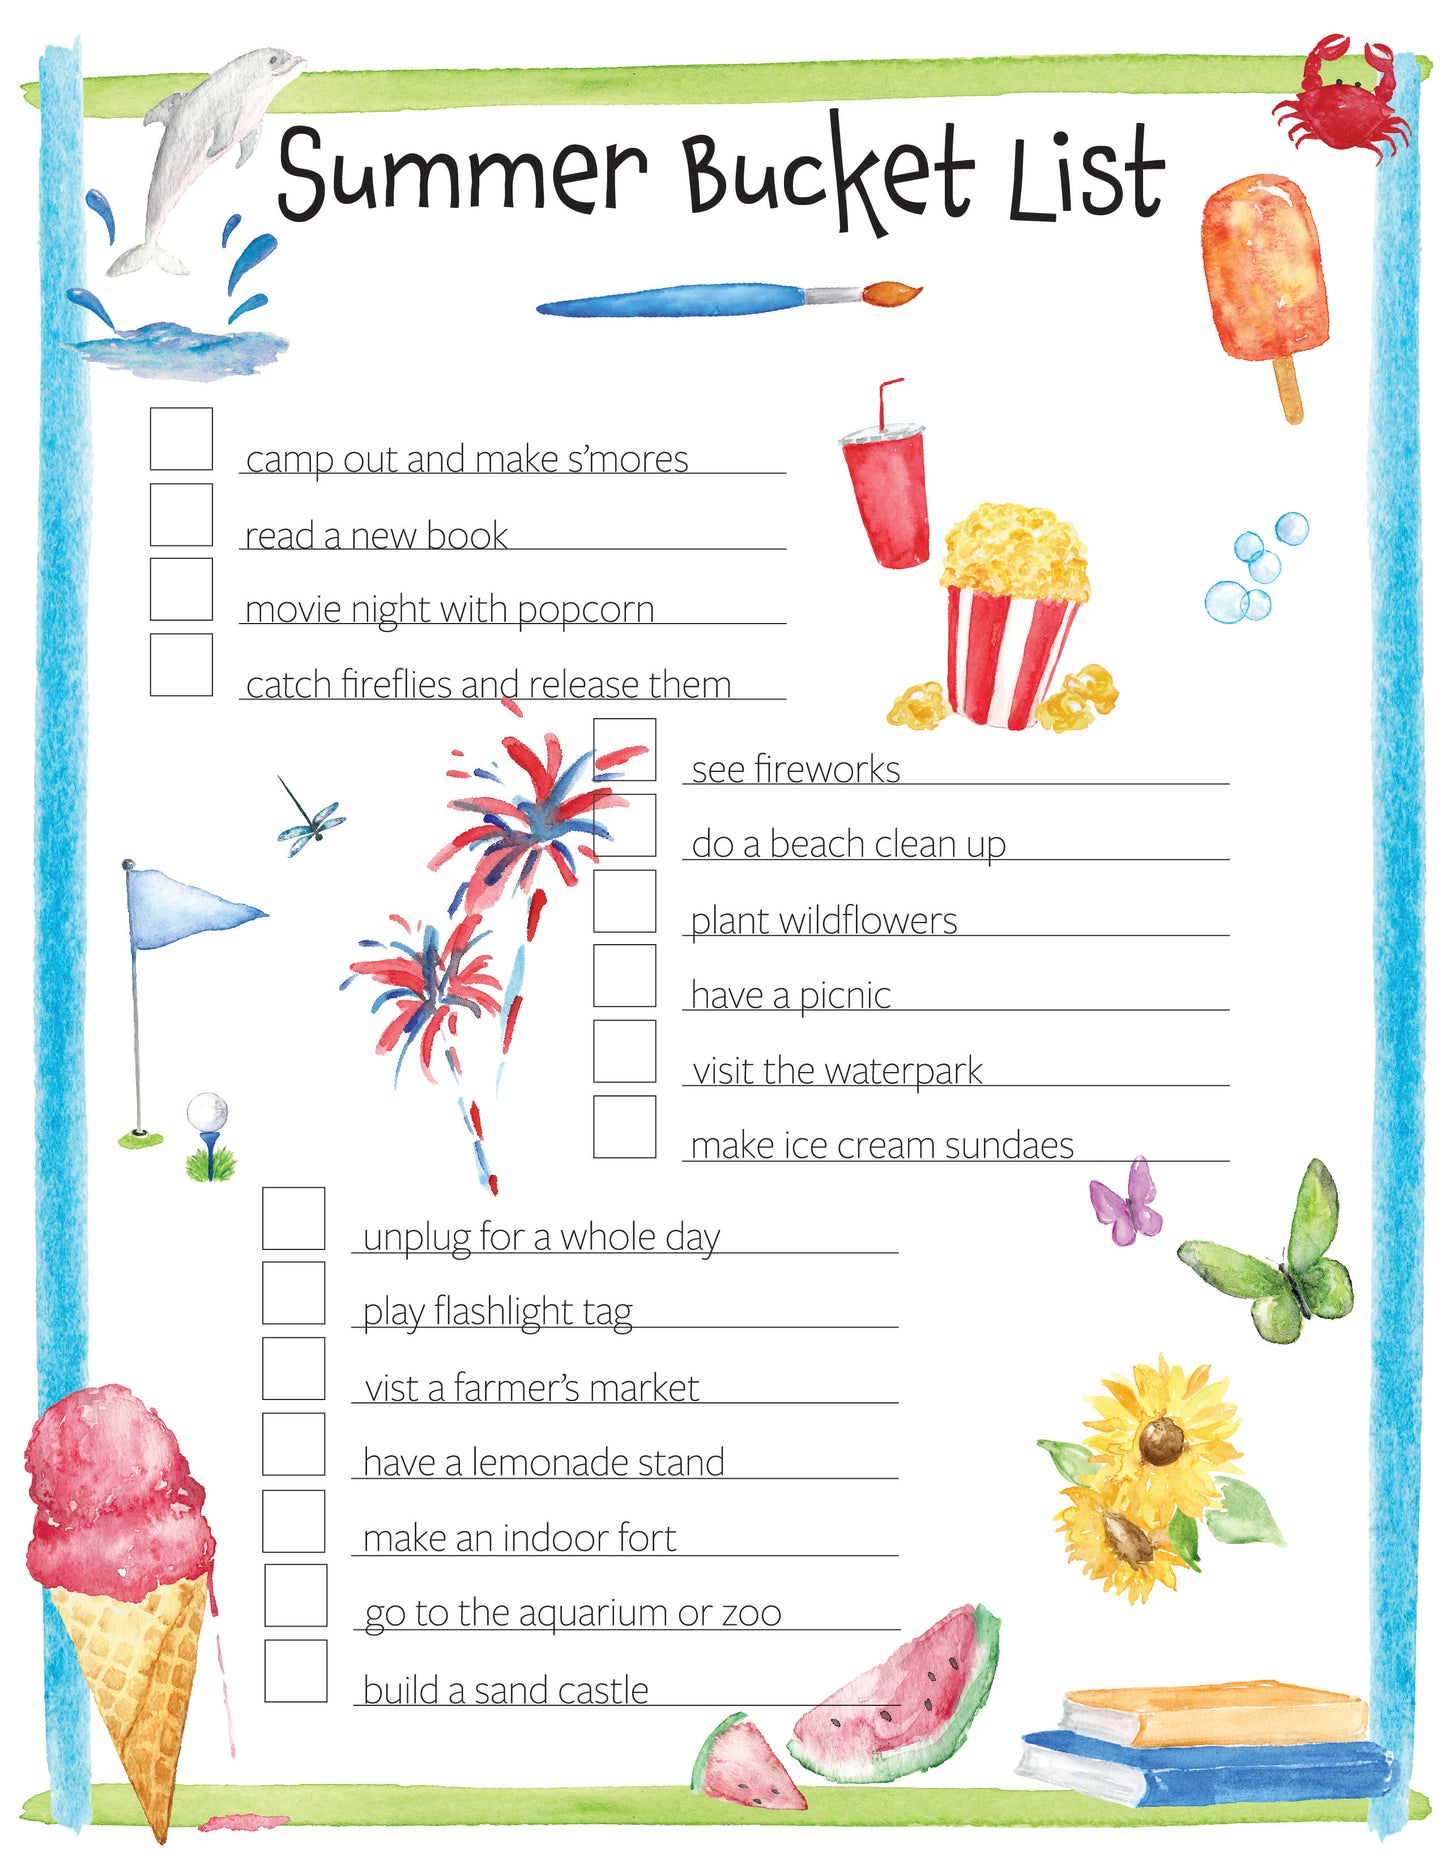 Summer Bucket List
camp out and make s’mores
read a new book
movie night with popcorn
catch fireflies and release them
see fireworks
do a beach clean up
plant wildflowers
have a picnic
visit the waterpark
make ice cream sundaes
unplug for a whole day
play flashlight tag
vist a farmer’s market
have a lemonade stand
make an indoor fort
go to the aquarium or zoo
build a sand castle